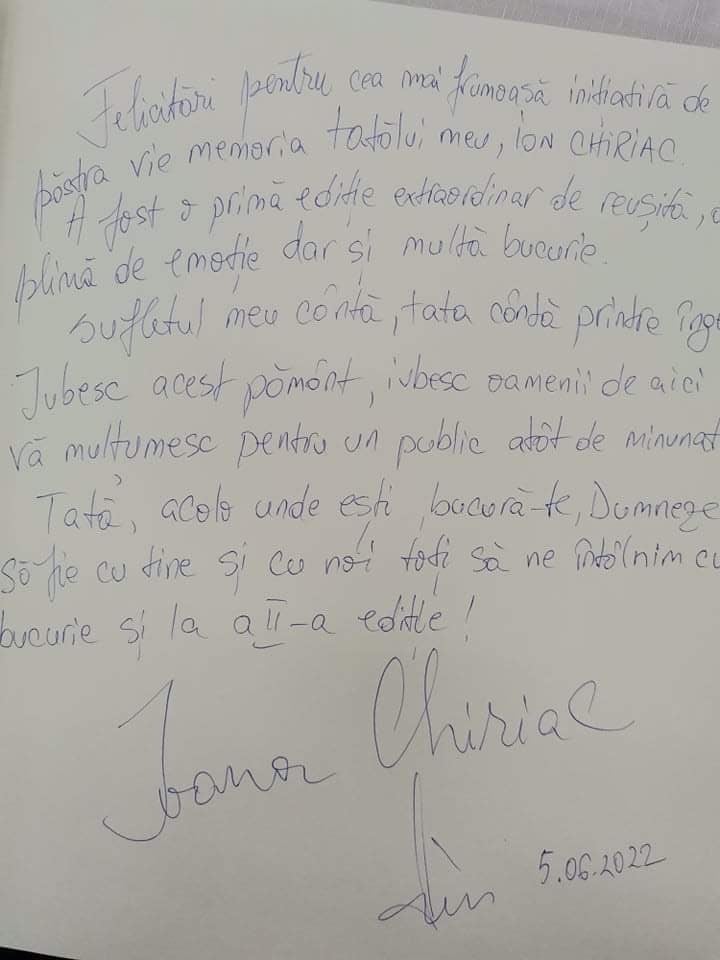 Felicitări pentru cea mai frumoasă initiativă de
păstra vie memoria tatălui meu, ION CHIRIAC.
A fost o primă ediție extraordinar de reușită, o
plină de emoție dar și multă bucurie.
Sufletul meu cântă, tata cântă printre înge
Iubesc acest pământ, iubesc oamenii de aici
Vă mulțumesc pentru un public atât de minunat
Tată, acolo unde ești, bucură-te, Dumneze
Să fie cu tine și cu noi toți să ne întâlnim cu
bucurie și la a II-a ediție!
Ioana Chiriac
5.06.2022